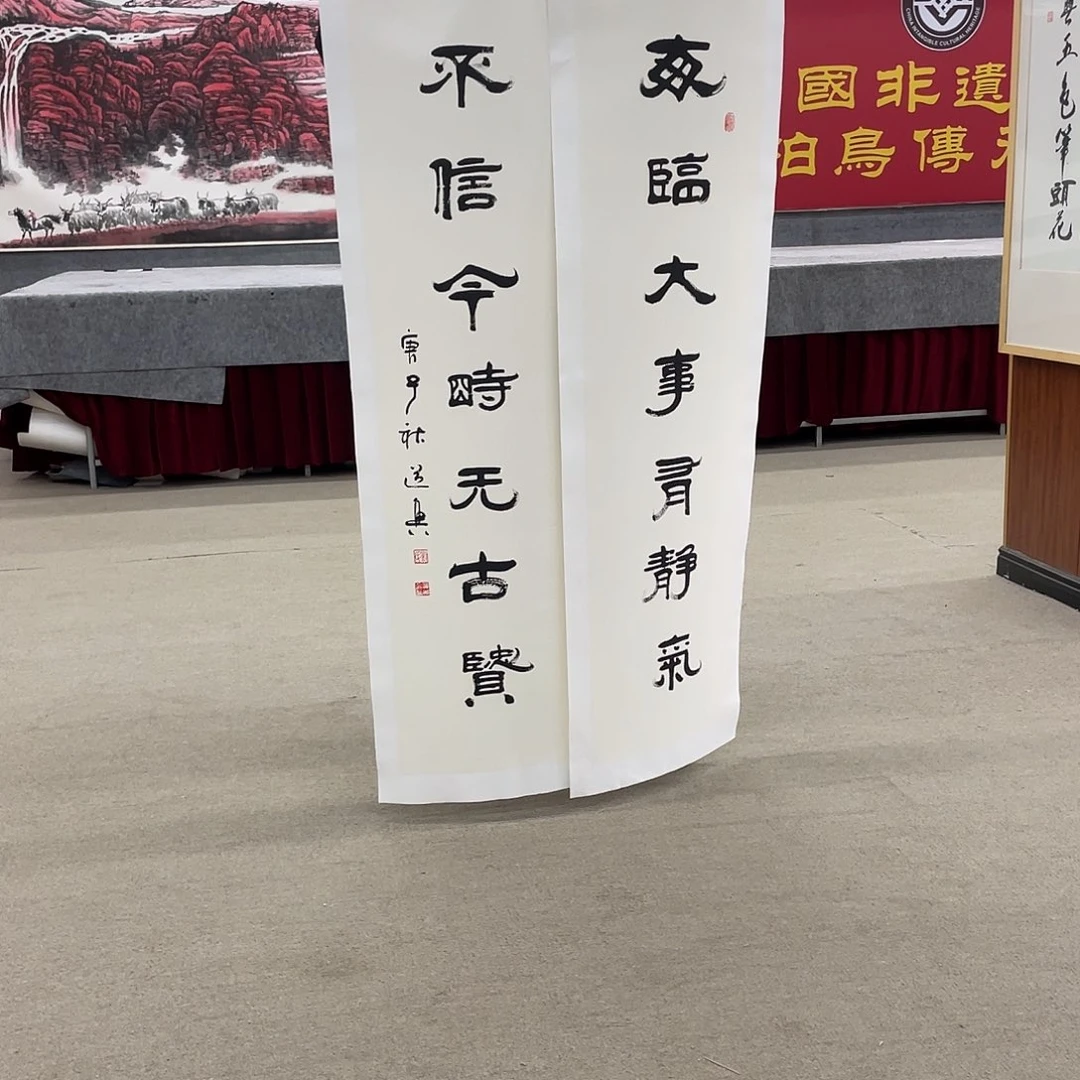 每臨大事有靜氣
不信今時无古賢
庚子秋
CHINA INTANGIBLE CULTURAL HERITAGE
國非遺
鳥傳
五色筆頭花